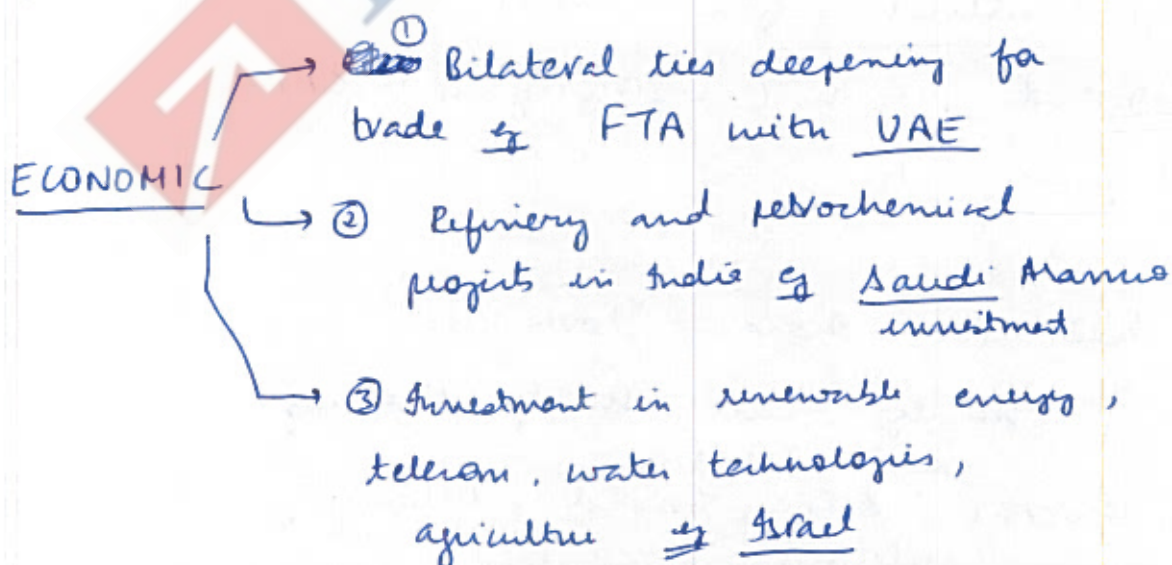 ① Bilateral ties deepening for
trade eg FTA with UAE
ECONOMIC
② Refinery and petrochemical
projects in India eg Saudi Aramco
investment
③ Investment in renewable energy,
telecom, water technologies,
agriculture eg Israel